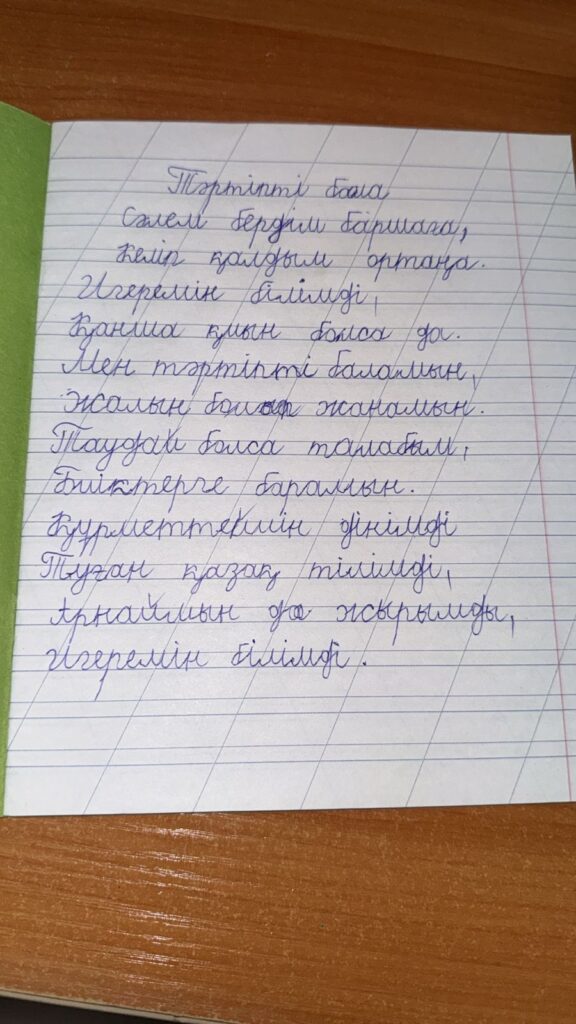 Тәртіпті бала
Сәлем бердім баршаға,
Келіп қалдым ортаңа.
Игеремін білімді,
Қанша қиын болса да.
Мен тәртіпті баламын,
Жалын болып жанамын.
Таудай болса талабым,
Биіктерге барамын.
Құрметтеймін дінімді
Туған қазақ тілімді,
Арнаймын да жырымды,
Игеремін білімді.